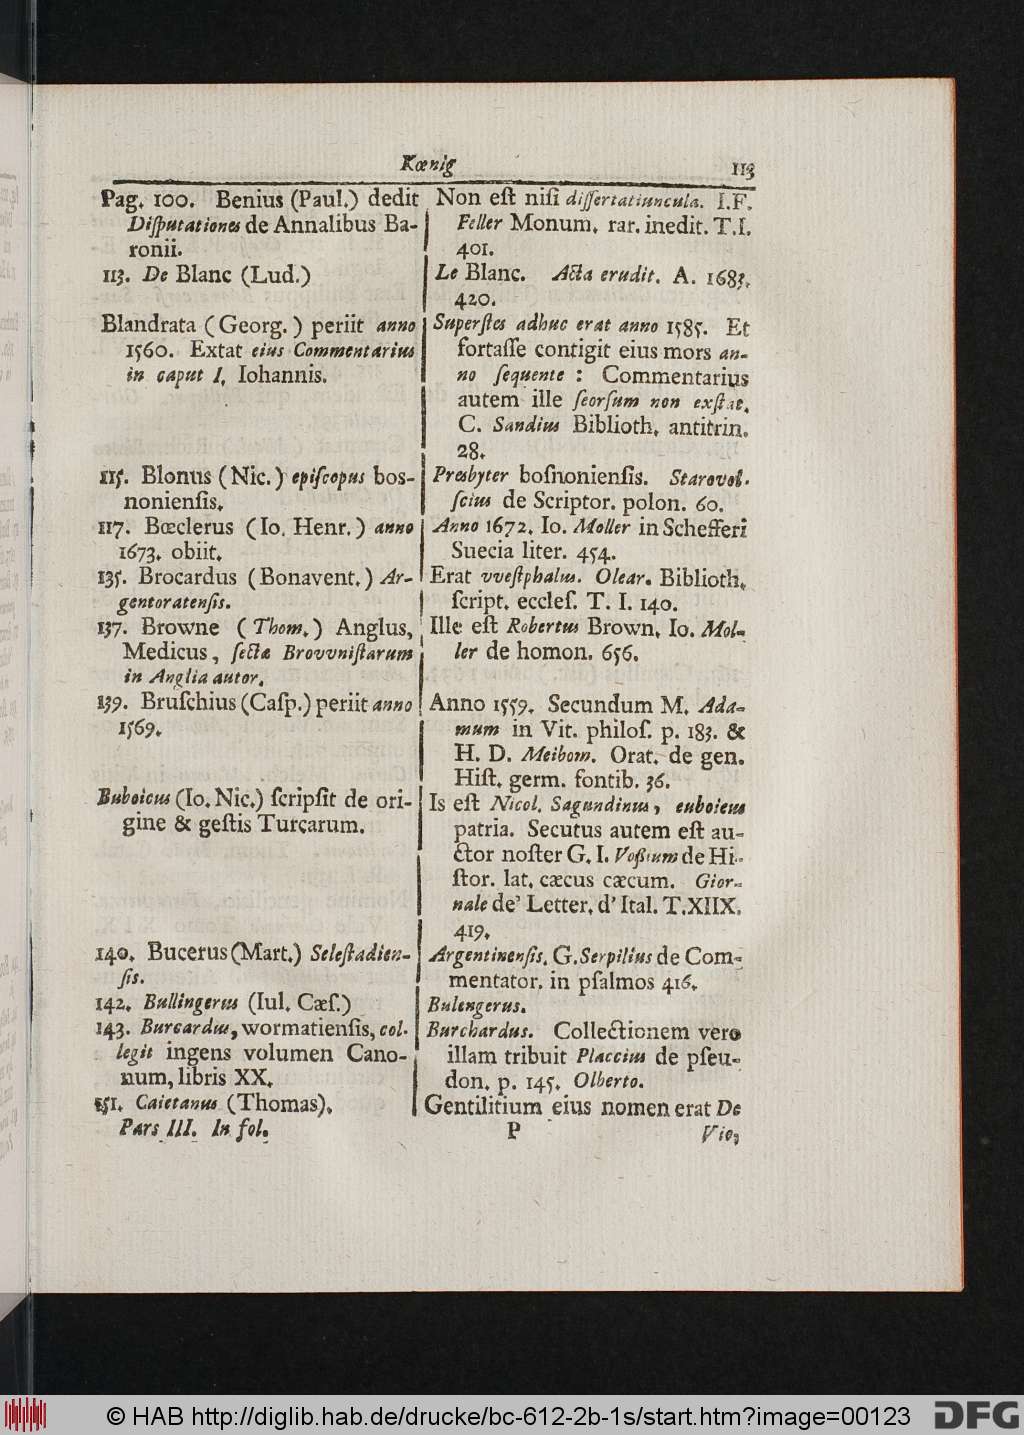 Kœnig
113
Pag. 100. Benius (Paul.) dedit
Diſputationes de Annalibus Ba-
ronii.
113. De Blanc (Lud.)
Blandrata (Georg.) periit anno
1560. Extat eius Commentarius
in caput I. Iohannis.
115. Blonus (Nic.) epiſcopus bos-
nonienſis.
117. Bœclerus (Io. Henr.) anno
1673. obiit.
135. Brocardus (Bonavent.) Ar-
gentoratenſis.
137. Browne (Thom.) Anglus,
Medicus, ſectæ Brovvniſtarum
in Anglia autor.
139. Bruſchius (Caſp.) periit anno
1569.
Buboicus (Io. Nic.) ſcripſit de ori-
gine & geſtis Turcarum.
140. Bucerus (Mart.) Seleſtadien-
ſis.
142. Bullingerus (Iul. Cæſ.)
143. Burcardus, wormatienſis, col-
legit ingens volumen Cano-
num, libris XX.
151. Caietanus (Thomas).
Pars III. In fol.
Non eſt niſi diſſertatiuncula. I.F.
Feller Monum. rar. inedit. T.I.
401.
Le Blanc. Acta erudit. A. 1683.
420.
Superſtes adhuc erat anno 1585. Et
fortaſſe contigit eius mors an-
no ſequente : Commentarius
autem ille ſeorſum non exſtat.
C. Sandius Biblioth. antitrin.
28.
Presbyter boſnonienſis. Starovol-
ſcius de Scriptor. polon. 60.
Anno 1672. Io. Moller in Schefferi
Suecia liter. 454.
Erat vveſtphalus. Olear. Biblioth.
ſcript. eccleſ. T. I. 140.
Ille eſt Robertus Brown. Io. Mol-
ler de homon. 656.
Anno 1559. Secundum M. Ada-
mum in Vit. philoſ. p. 183. &
H. D. Meibom. Orat. de gen.
Hiſt. germ. fontib. 36.
Is eſt Nicol. Sagundinus, euboicus
patria. Secutus autem eſt au-
ctor noſter G. I. Voßium de Hi-
ſtor. lat. cæcus cæcum. Gior-
nale de' Letter. d' Ital. T.XIIX.
419.
Argentinenſis. G. Serpilius de Com-
mentator. in pſalmos 416.
Bulengerus.
Burchardus. Collectionem vero
illam tribuit Placcius de pſeu-
don. p. 145. Olberto.
Gentilitium eius nomen erat De
P
Vio,
© HAB http://diglib.hab.de/drucke/bc-612-2b-1s/start.htm?image=00123
DFG